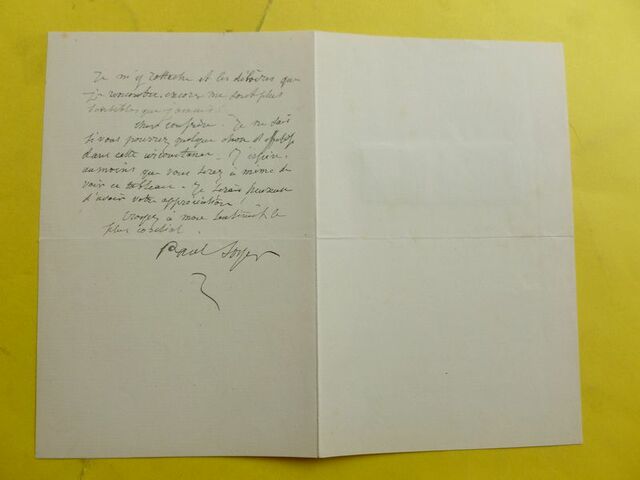 Je m'y rattache et les déboires que
je rencontre encore me sont plus
sensibles que jamais.
cher confrère. Je ne sais
si vous pourrez quelque chose d'effectif
dans cette circonstance. J'espère
au moins que vous serez à même de
voir ce tableau. Je serais heureux
d'avoir votre appréciation.
Croyez à mon sentiment le
plus cordial.
Paul Soyer